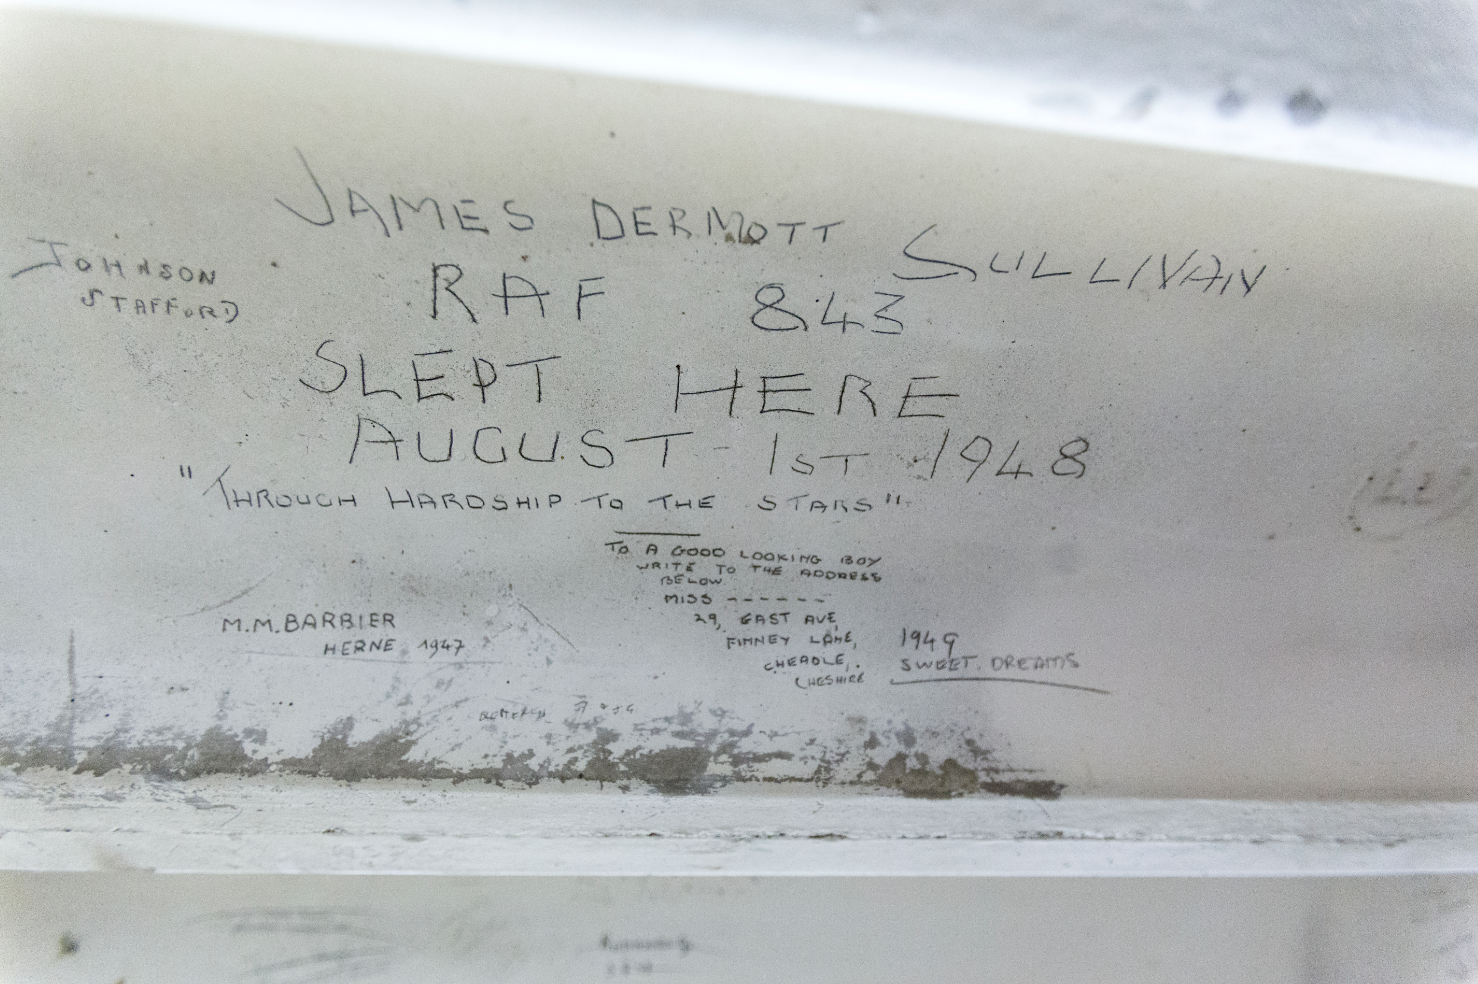 JAMES DERMOTT SULLIVAN
JOHNSON
STAFFORD
RAF 843
SLEPT HERE
AUGUST - 1ST 1948
"THROUGH HARDSHIP TO THE STARS"
TO A GOOD LOOKING BOY
WRITE TO THE ADDRESS
BELOW.
MISS ------
29, EAST AVE,
FINNEY LANE,
CHEADLE,.
CHESHIRE
M.M.BARBIER
HERNE 1947
1949
SWEET. DREAMS